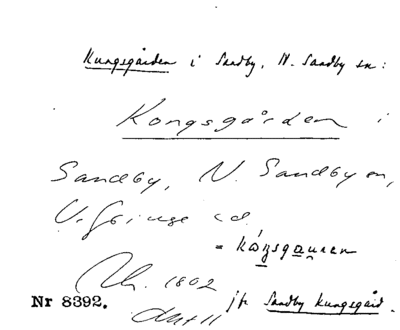 Kungsgården i Sandby, N. Sandby sn:
Kongsgården i
Sandby, N. Sandby sn,
V. Göinge hd.
1802
Nr 8392.
jfr Sandby Kungsgård.